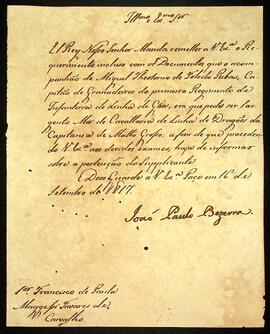 Illmo e Exmo Snr
El Rey Nosso Senhor Manda remetter a V. Exa o Re-
querimento incluso com os Documentos, que o acom-
panhão de Miguel Theotonio de Toledo Ribas, Ca-
pitão de Granadeiros do primeiro Regimento de
Infantaria de Linha da Côrte, em que pede ser Sar-
gento Mor de Cavallaria de Linha de Dragões da
Capitania de Matto Grosso: a fim de que procedendo
V. Exa aos devidos exames, haja de informar
sobre a pertenção do Supplicante.
Deos Guarde a V. Exa Paço em 16 de
Setembro de 1817.
João Paulo Bezerra
Snr Francisco de Paula
Magge Tavares de
Carvalho.